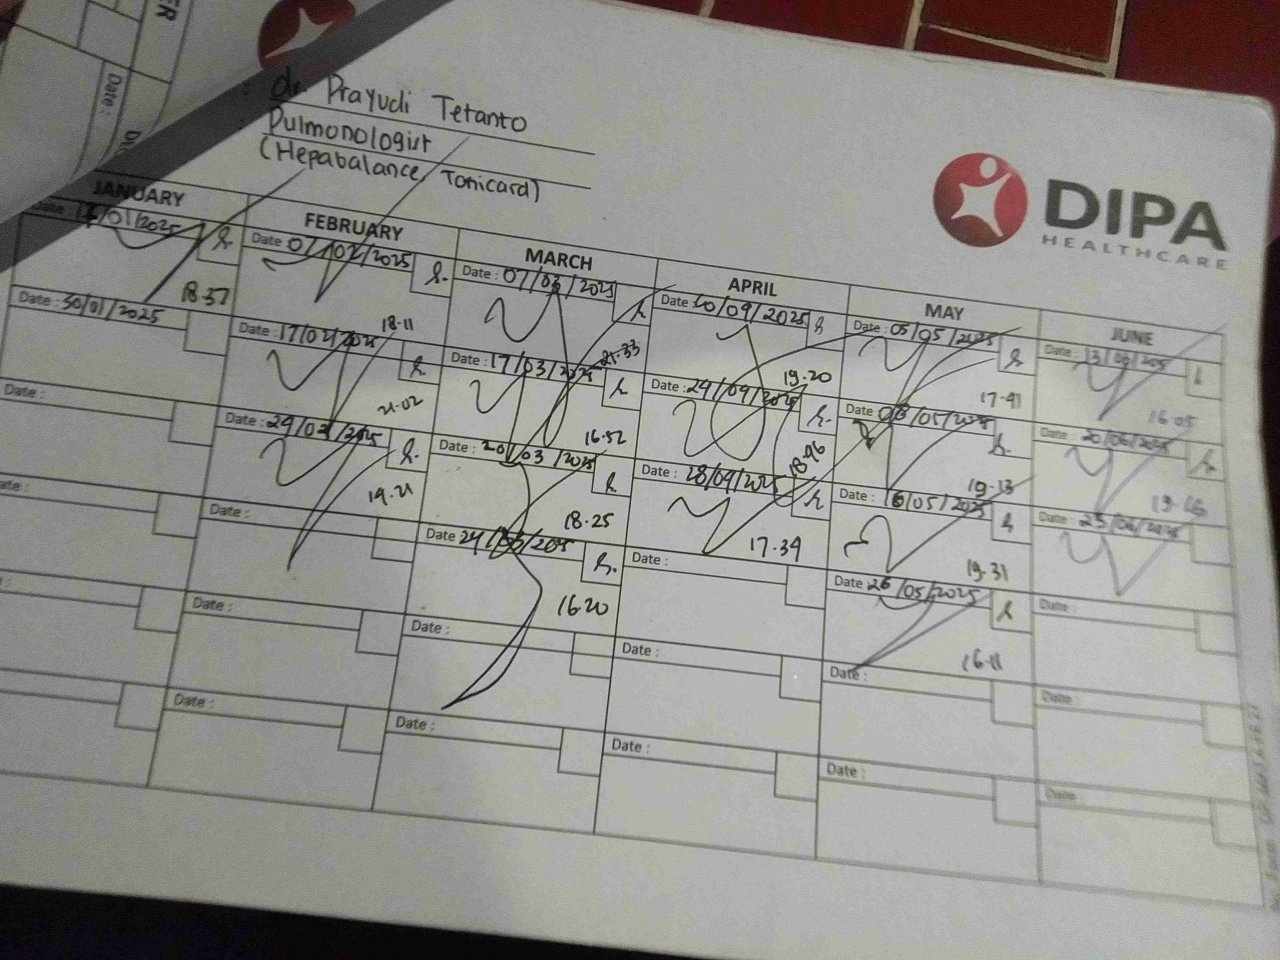 dr. Prayudi Tetanto
Pulmonologist
(Hepabalance, Tonicard)
DIPA
HEALTHCARE
Date:
JANUARY
FEBRUARY
MARCH
APRIL
MAY
JUNE
/01/2025
18.37
Date : 30/01/2025
Date :
Date : /02/2025
18.11
17/02/2025
21.02
24/02/2025
19.21
Date :
Date :
Date :
Date : 07/03/2025
21.33
17/03/2025
16.52
Date : 20/03/2025
18.25
Date 24/03/2025
16.20
Date :
Date :
Date 10/04/2025
19.20
Date : 24/04/2025
18.46
Date : 28/04/2025
17.34
Date :
Date :
Date :
Date : 05/05/2025
17.41
Date /05/2025
19.13
Date /05/2025
19.31
Date 26/05/2025
16.11
Date :
Date :
Date : 13/06/2025
16.05
20/06/2025
Date : /06/2025
Date :
Date :
Date